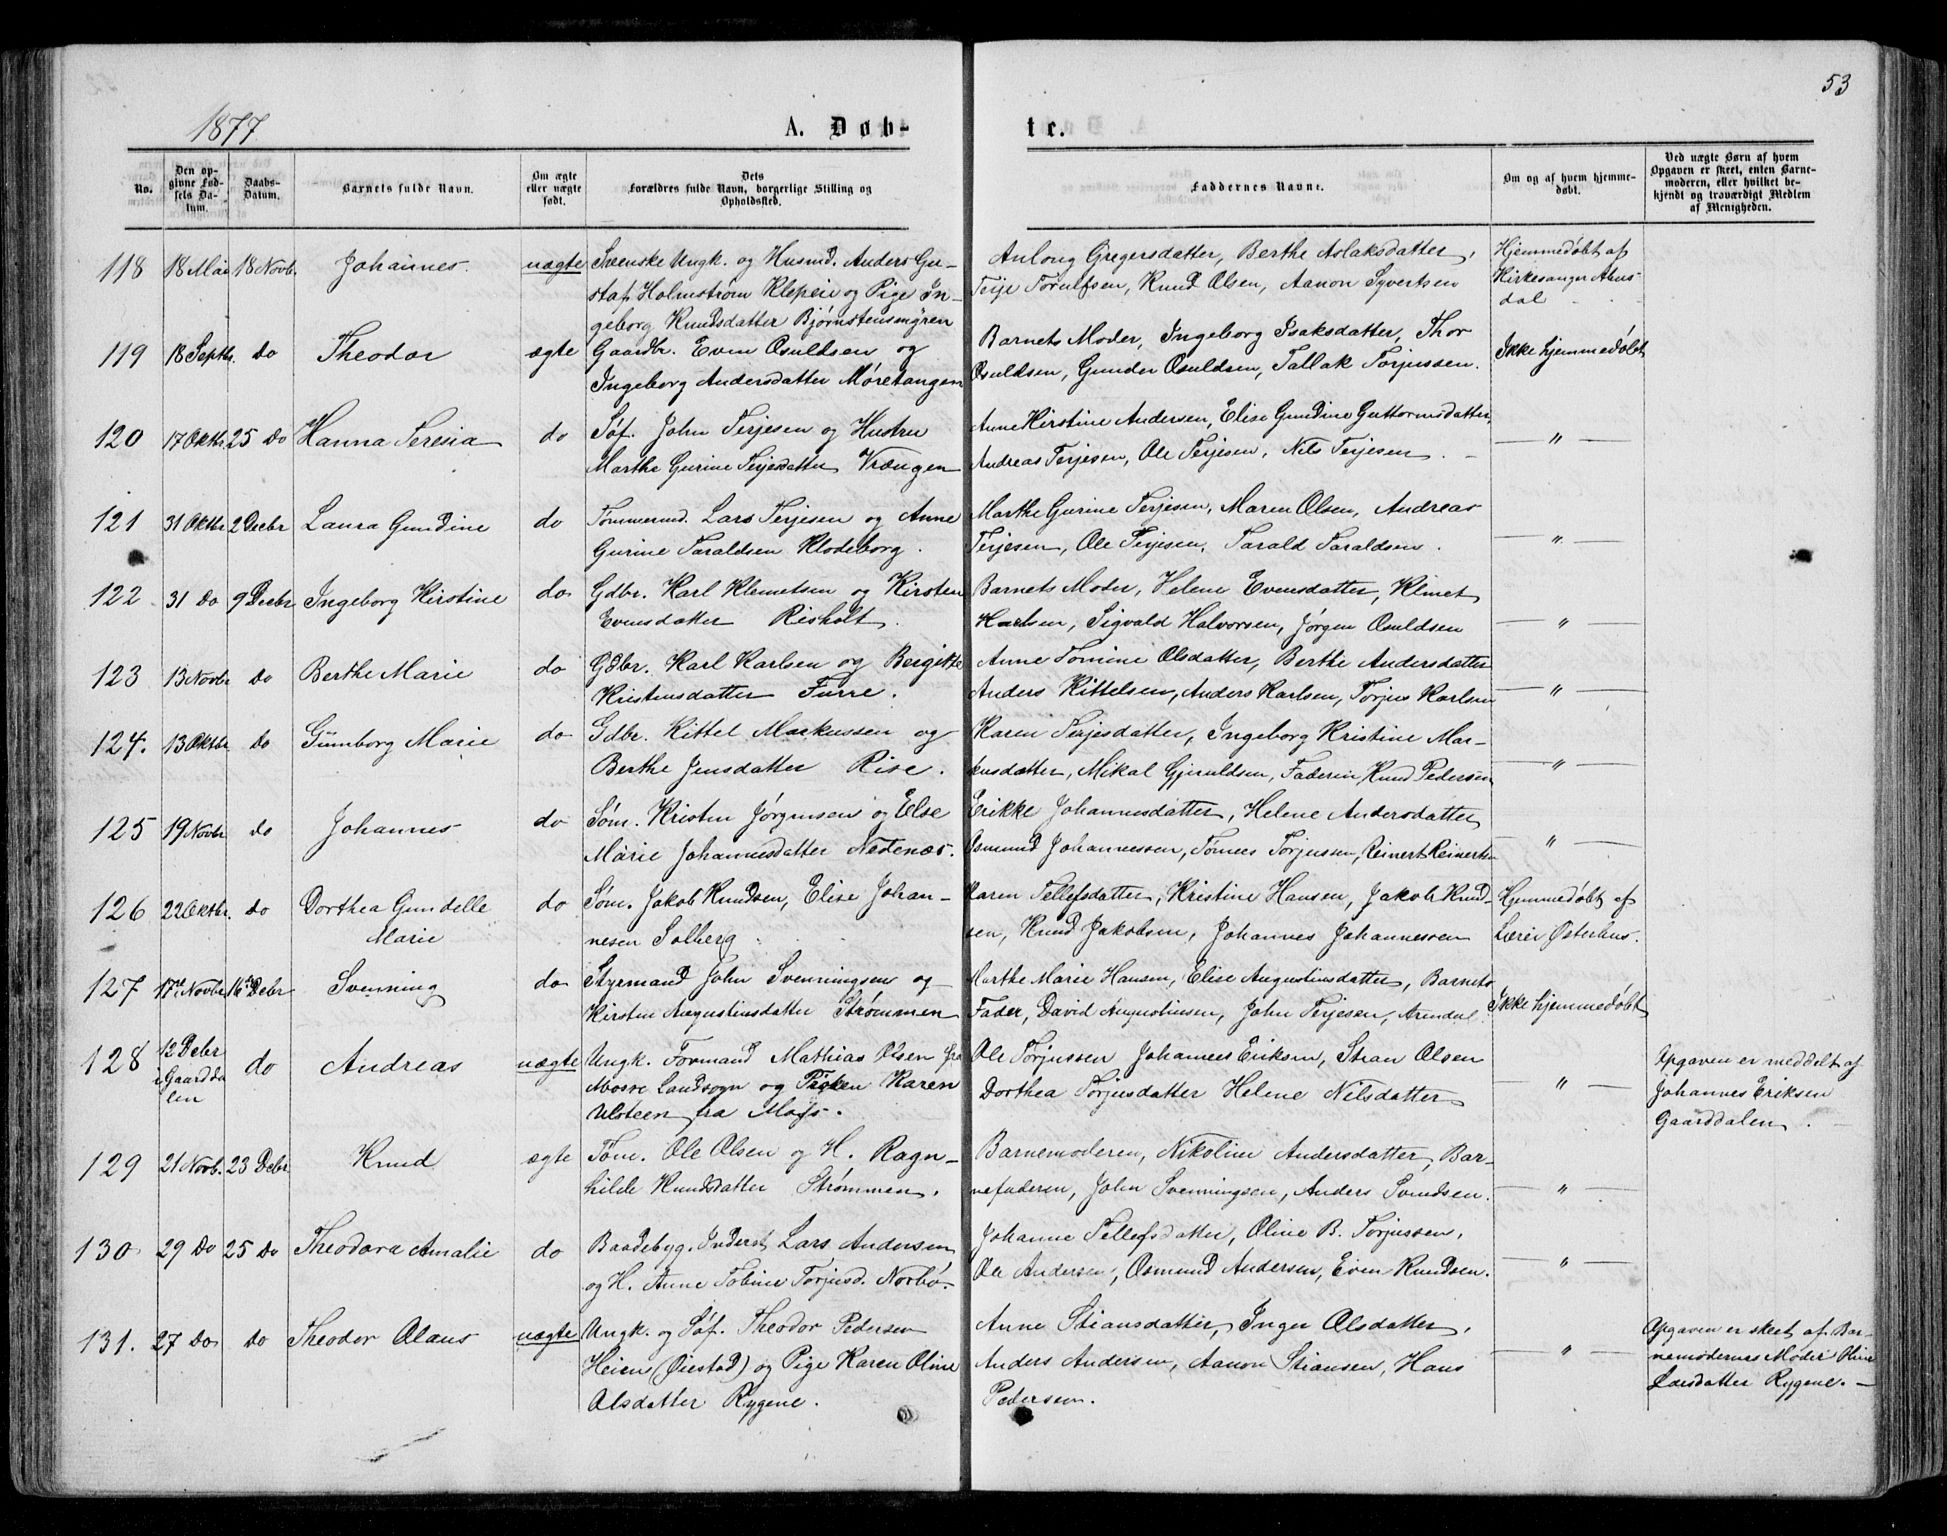 53
1877.
A. Døb-
te.
No.
Den op-
givne Fød-
sels Da-
tum.
Daabs-
Datum.
Barnets fulde Navn.
Om ægte
eller uægte
født.
Dets
Forældres fulde Navn, borgerlige Stilling og
Opholdssted.
Faddernes Navne.
Om og af hvem hjemme-
døbt.
Ved uægte Børn af hvem
Opgaven er skeet, enten Barne-
moderen, eller hvilket be-
kjendt og troværdigt Medlem
af Menigheden.
118 18 Mai 18 Novb. Johannes. uægte Svenske Ungk. og Husmd. Anders Gu-
staf Holmstrøm Klepeie og Pige In-
geborg Knudsdatter Bjørnstensmyren
Anlong Gregersdatter, Berthe Aslaksdatter,
Terje Torulfsen, Knud Olsen, Aanon Syvertsen
Hjemmedøbt af
Kirkesanger Aens-
dal
119 18 Septbr. do Theodor ægte Gaardbr. Even Osuldsen og
Ingeborg Andersdatter Møretangen
Barnets Moder, Ingeborg Isaksdatter, Thor
Osuldsen, Gunder Osuldsen, Tallak Torjussen.
Ikke hjemmedøbt
120 17 Oktbr. 25 Do Hanna Teresia do Søf. John Terjesen og Hustru
Marthe Gurine Terjesdatter Vrængen
Anne Kirstine Andersen, Elise Gundine Guttormsdatter,
Andreas Terjesen, Ole Terjesen, Nils Terjesen.
— " —
121 31 Oktbr 2 Decbr Laura Gundine do Tømmermd. Lars Terjesen og Anne
Gurine Taraldsen Klodeborg.
Marthe Gurine Terjesen, Maren Olsen, Andreas
Terjesen, Ole Terjesen, Tarald Taraldsen.
— " —
122 31 Do 9 Decbr Ingeborg Kirstine do Gdbr. Karl Klemetsen og Kirsten
Evensdatter Risholt.
Barnets Moder, Helene Evensdatter, Klmet
Karlsen, Sigvald Halvorsen, Jørgen Osuldsen
— " —
123 13 Novbr do Berthe Marie do Gdbr. Karl Karlsen og Beigitte
Kristensdatter Furre.
Anne Tomine Olsdatter, Berthe Andersdatter
Anders Kittelsen, Anders Karlsen, Torjus Karlsen
— " —
124. 13 Oktbr do Gunborg Marie do Gdbr. Kittel Markussen og
Berthe Jensdatter Rise.
Karen Terjesdatter, Ingeborg Kristine Mar-
kusdatter, Mikal Gjeruldsen, Faderen Knud Pedersen
— " —
125 19 Novbr do Johannes do Søm. Kristen Jørgensen og Else
Marie Johannesdatter Nedenæs.
Erikke Johannesdatter, Helene Andersdatter
Osmund Johannessen, Tønnes Torjussen, Reinert Reinertsen
— " —
126 22 Oktbr. do Dorthea Gundelle
Marie
do Søm. Jakob Knudsen, Elise Johan-
nesen Solberg.
Karen Tellefsdatter, Kristine Hansen, Jakob Knud-
sen, Knud Jakobsen, Johannes Johannessen
Hjemmedøbt af
Lærer Østerhus.
127 17de Novbr 16de Debr Svenning do Styrmand John Svenningsen og
Kirsten Augustinsdatter Strømmen
Marthe Marie Hansen, Elise Augustinsdatter, Barnets
Fader, David Augustinsen, John Terjesen, Arendal
Ikke hjemmedøbt
128 12 Debr
i Gaardda
len
do Andreas uægte Ungk. Formand Mathias Olsen fra
Mosve Landsogn og Pigen Karen
Ulsteen fra Moss.
Ole Torjussen Johannes Eriksen, Stian Olsen
Dorthea Torjusdatter Helene Nilsdatter
— " —
Opgaven er meddelt af
Johannes Eriksen
Gaarddalen.
129 21 Novb. 23 Debr Knud ægte Tøm. Ole Olsen og H. Ragn-
hilde Knudsdatter Strømmen.
Barnemoderen, Nikoline Andersdatter, Bar-
nefaderen, John Svenningsen, Anders Svendsen.
— " —
130 29 Do 25 Do Theodora Amalie do Baadebyg. Inderst Lars Andersen
og H. Anne Tobine Torjusd. Norbø.
Johanne Tellefsdatter, Oline B. Torjussen,
Ole Andersen, Osmund Andersen, Even Knudsen.
— " —
131. 27 Do do Theodor Olaus uægte Ungk. og Søf. Theodor Pedersen
Heien (Øiestad) og Pige Karen Oline
Olsdatter Rygene.
Anne Stiansdatter, Inger Olsdatter,
Anders Andersen, Aanon Stiansen, Hans
Pedersen.
— " —
Opgaven er skeet af Bar-
nemoderens Moder Oline
Larsdatter Rygene. —